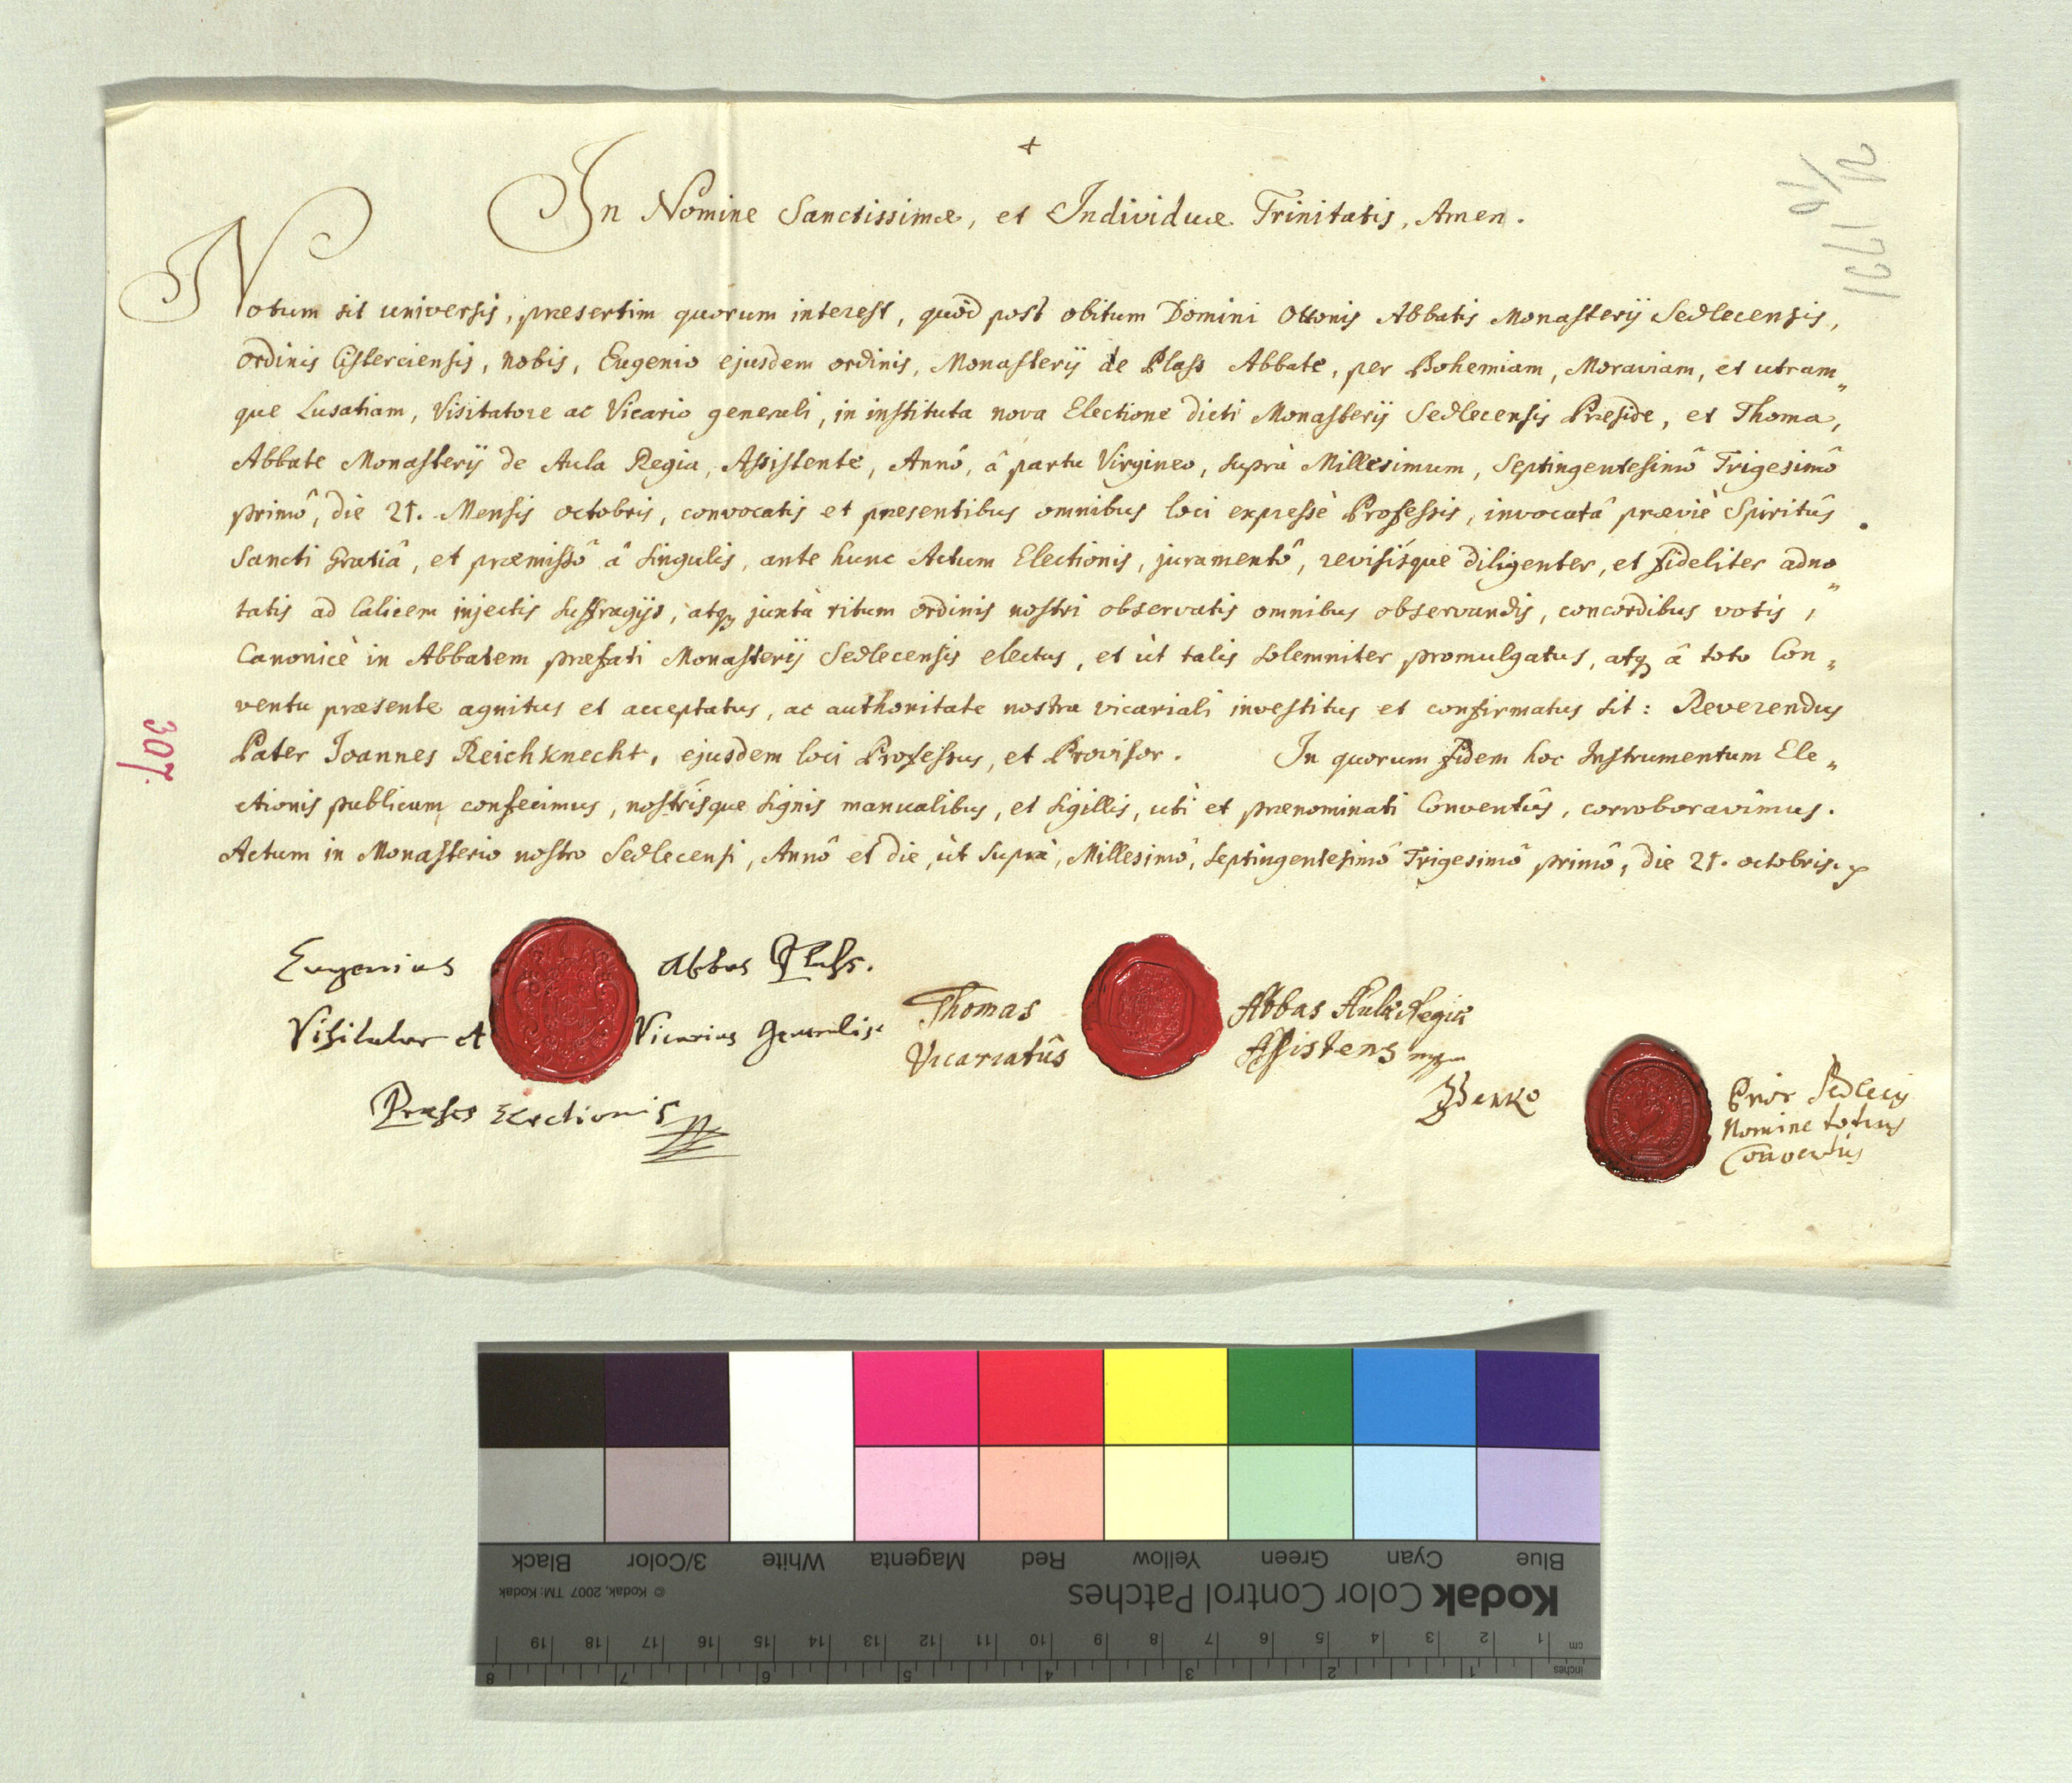 +
In Nomine Sanctissimæ, et Individuæ Trinitatis, Amen.
Notum sit universis, præsertim quorum interest, quòd post obitum Domini Ottonis Abbatis Monasterij Sedlecensis,
Ordinis Cisterciensis, nobis, Eugenio ejusdem ordinis, Monasterij de Plass Abbate, per Bohemiam, Moraviam, et utram„
que Lusatiam, Visitatore ac Vicario generali, in instituta nova Electione dicti Monasterij Sedlecensis Præside, et Thoma,
Abbate Monasterij de Aula Regia, Assistente, Annô, â partu Virgineo, suprà Millesimum, Septingentesimô Trigesimô
primô, die 21. Mensis octobris, convocatis et præsentibus omnibus loci expressè Professis, invocatâ præviè Spiritûs
Sancti Gratiâ, et præmissô â singulis, ante hunc Actum Electionis, juramentô, revisísque diligenter, et fideliter adno„
tatis ad Calicem injectis suffragijs, atq juxtà ritum ordinis nostri observatis omnibus observandis, concordibus votis,
Canonicè in Abbatem præfati Monasterij Sedlecensis electus, et ùt talis solemniter promulgatus, atq â toto Con„
ventu præsente agnitus et acceptatus, ac authoritate nostra vicariali investitus et confirmatus sit: Reverendus
Pater Joannes Reichknecht, ejusdem loci Professus, et Provisor. In quorum fidem hoc Instrumentum Ele„
ctionis publicum confecimus, nostrísque signis manualibus, et sigillis, utì et prænominati Conventûs, corroboravimus.
Actum in Monasterio nostro Sedlecensi, Annô et die, ùt suprà, Millesimô, Septingentesimô Trigesimô primô, die 21. octobris.
Eugenius Abbas Plass.
Visitator et Vicarius Generalis
Præses Electionis
Thomas Abbas Aulæ Regiæ
Vicariatûs Assistens mp
Zdenko Prior Sedlecij
Nomine totius
Conventûs
307.
1731 21/10
Black 3/Color White Magenta Red Yellow Green Cyan Blue
© Kodak, 2007 TM: Kodak
Kodak Color Control Patches
cm 1 2 3 4 5 6 7 8 9 10 11 12 13 14 15 16 17 18 19
inches 1 2 3 4 5 6 7 8